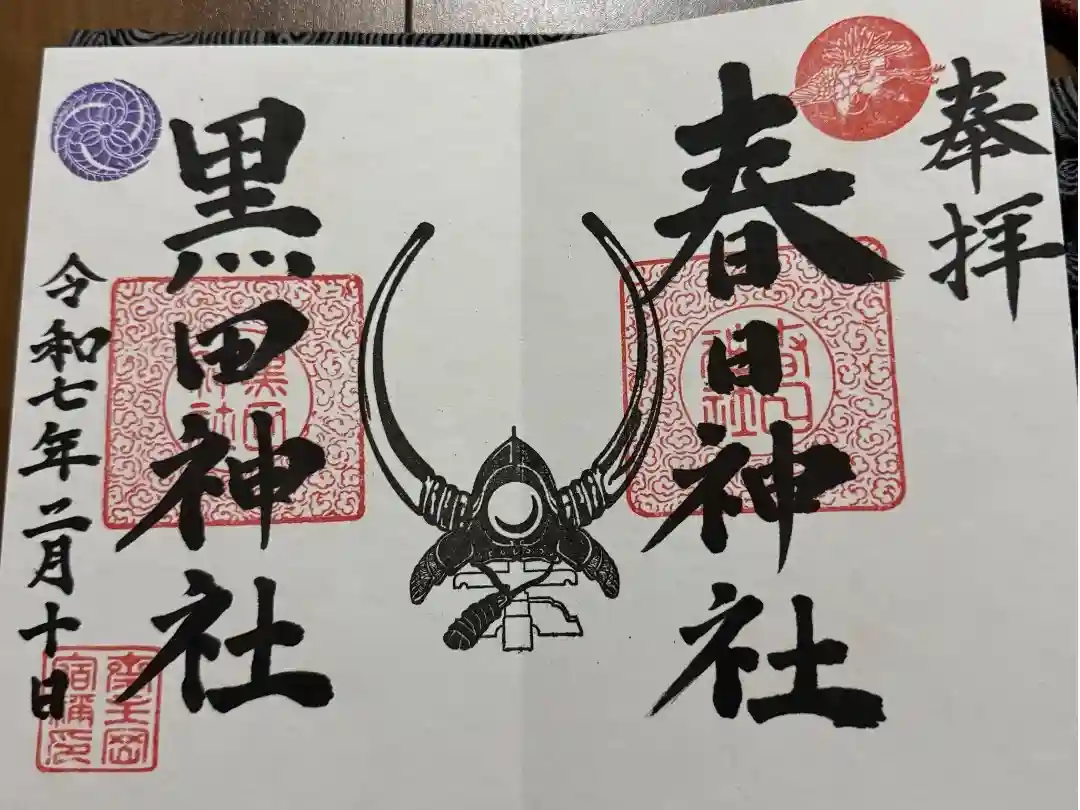 奉拝
春日神社
黒田神社
令和七年二月十日